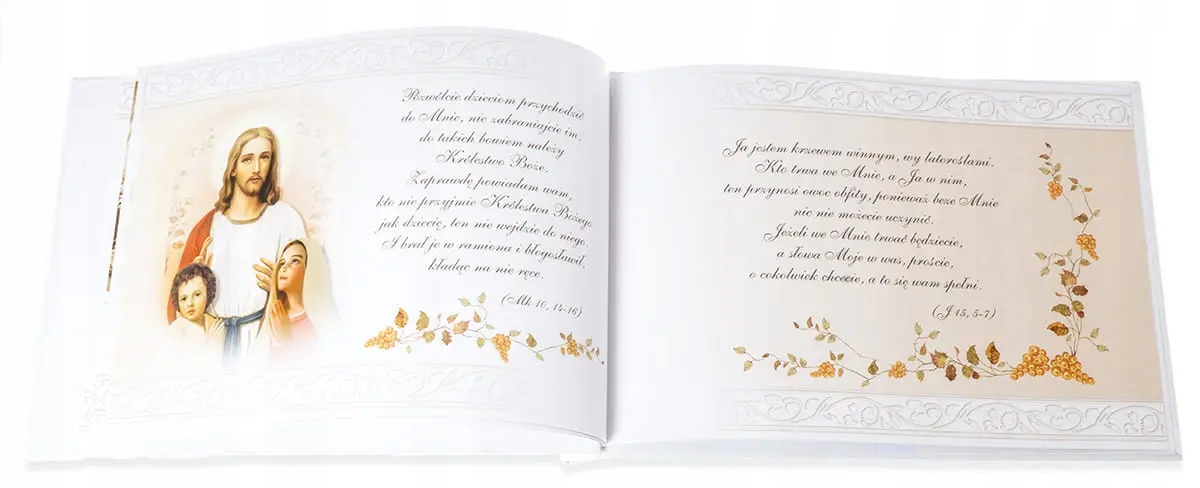 Pozwólcie dzieciom przychodzić
do Mnie, nie zabraniajcie im,
do takich bowiem należy
Królestwo Boże.
Zaprawdę powiadam wam,
kto nie przyjmie Królestwa Bożego
jak dziecię, ten nie wejdzie do niego.
I brał je w ramiona i błogosławił,
kładąc na nie ręce.
(Mk 10, 14-16)
Ja jestem krzewem winnym, wy latoroślami.
Kto trwa we Mnie, a Ja w nim,
ten przynosi owoc obfity, ponieważ beze Mnie
nic nie możecie uczynić.
Jeżeli we Mnie trwać będziecie,
a słowa Moje w was, proście,
o cokolwiek chcecie, a to się wam spełni.
(J 15, 5-7)